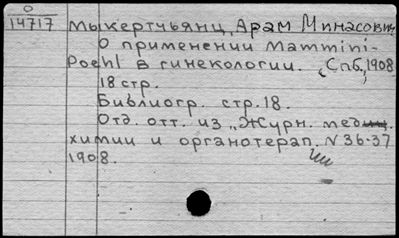 О
14717
Мыкертчьянц, Арам Минасович
О применении Mammini-
Poehl в гинекологии. (Спб., 1908)
18 стр.
Библиогр. стр. 18.
Отд. отт. из „Журн. мед.
химии и органотерап. N 36-37
1908.